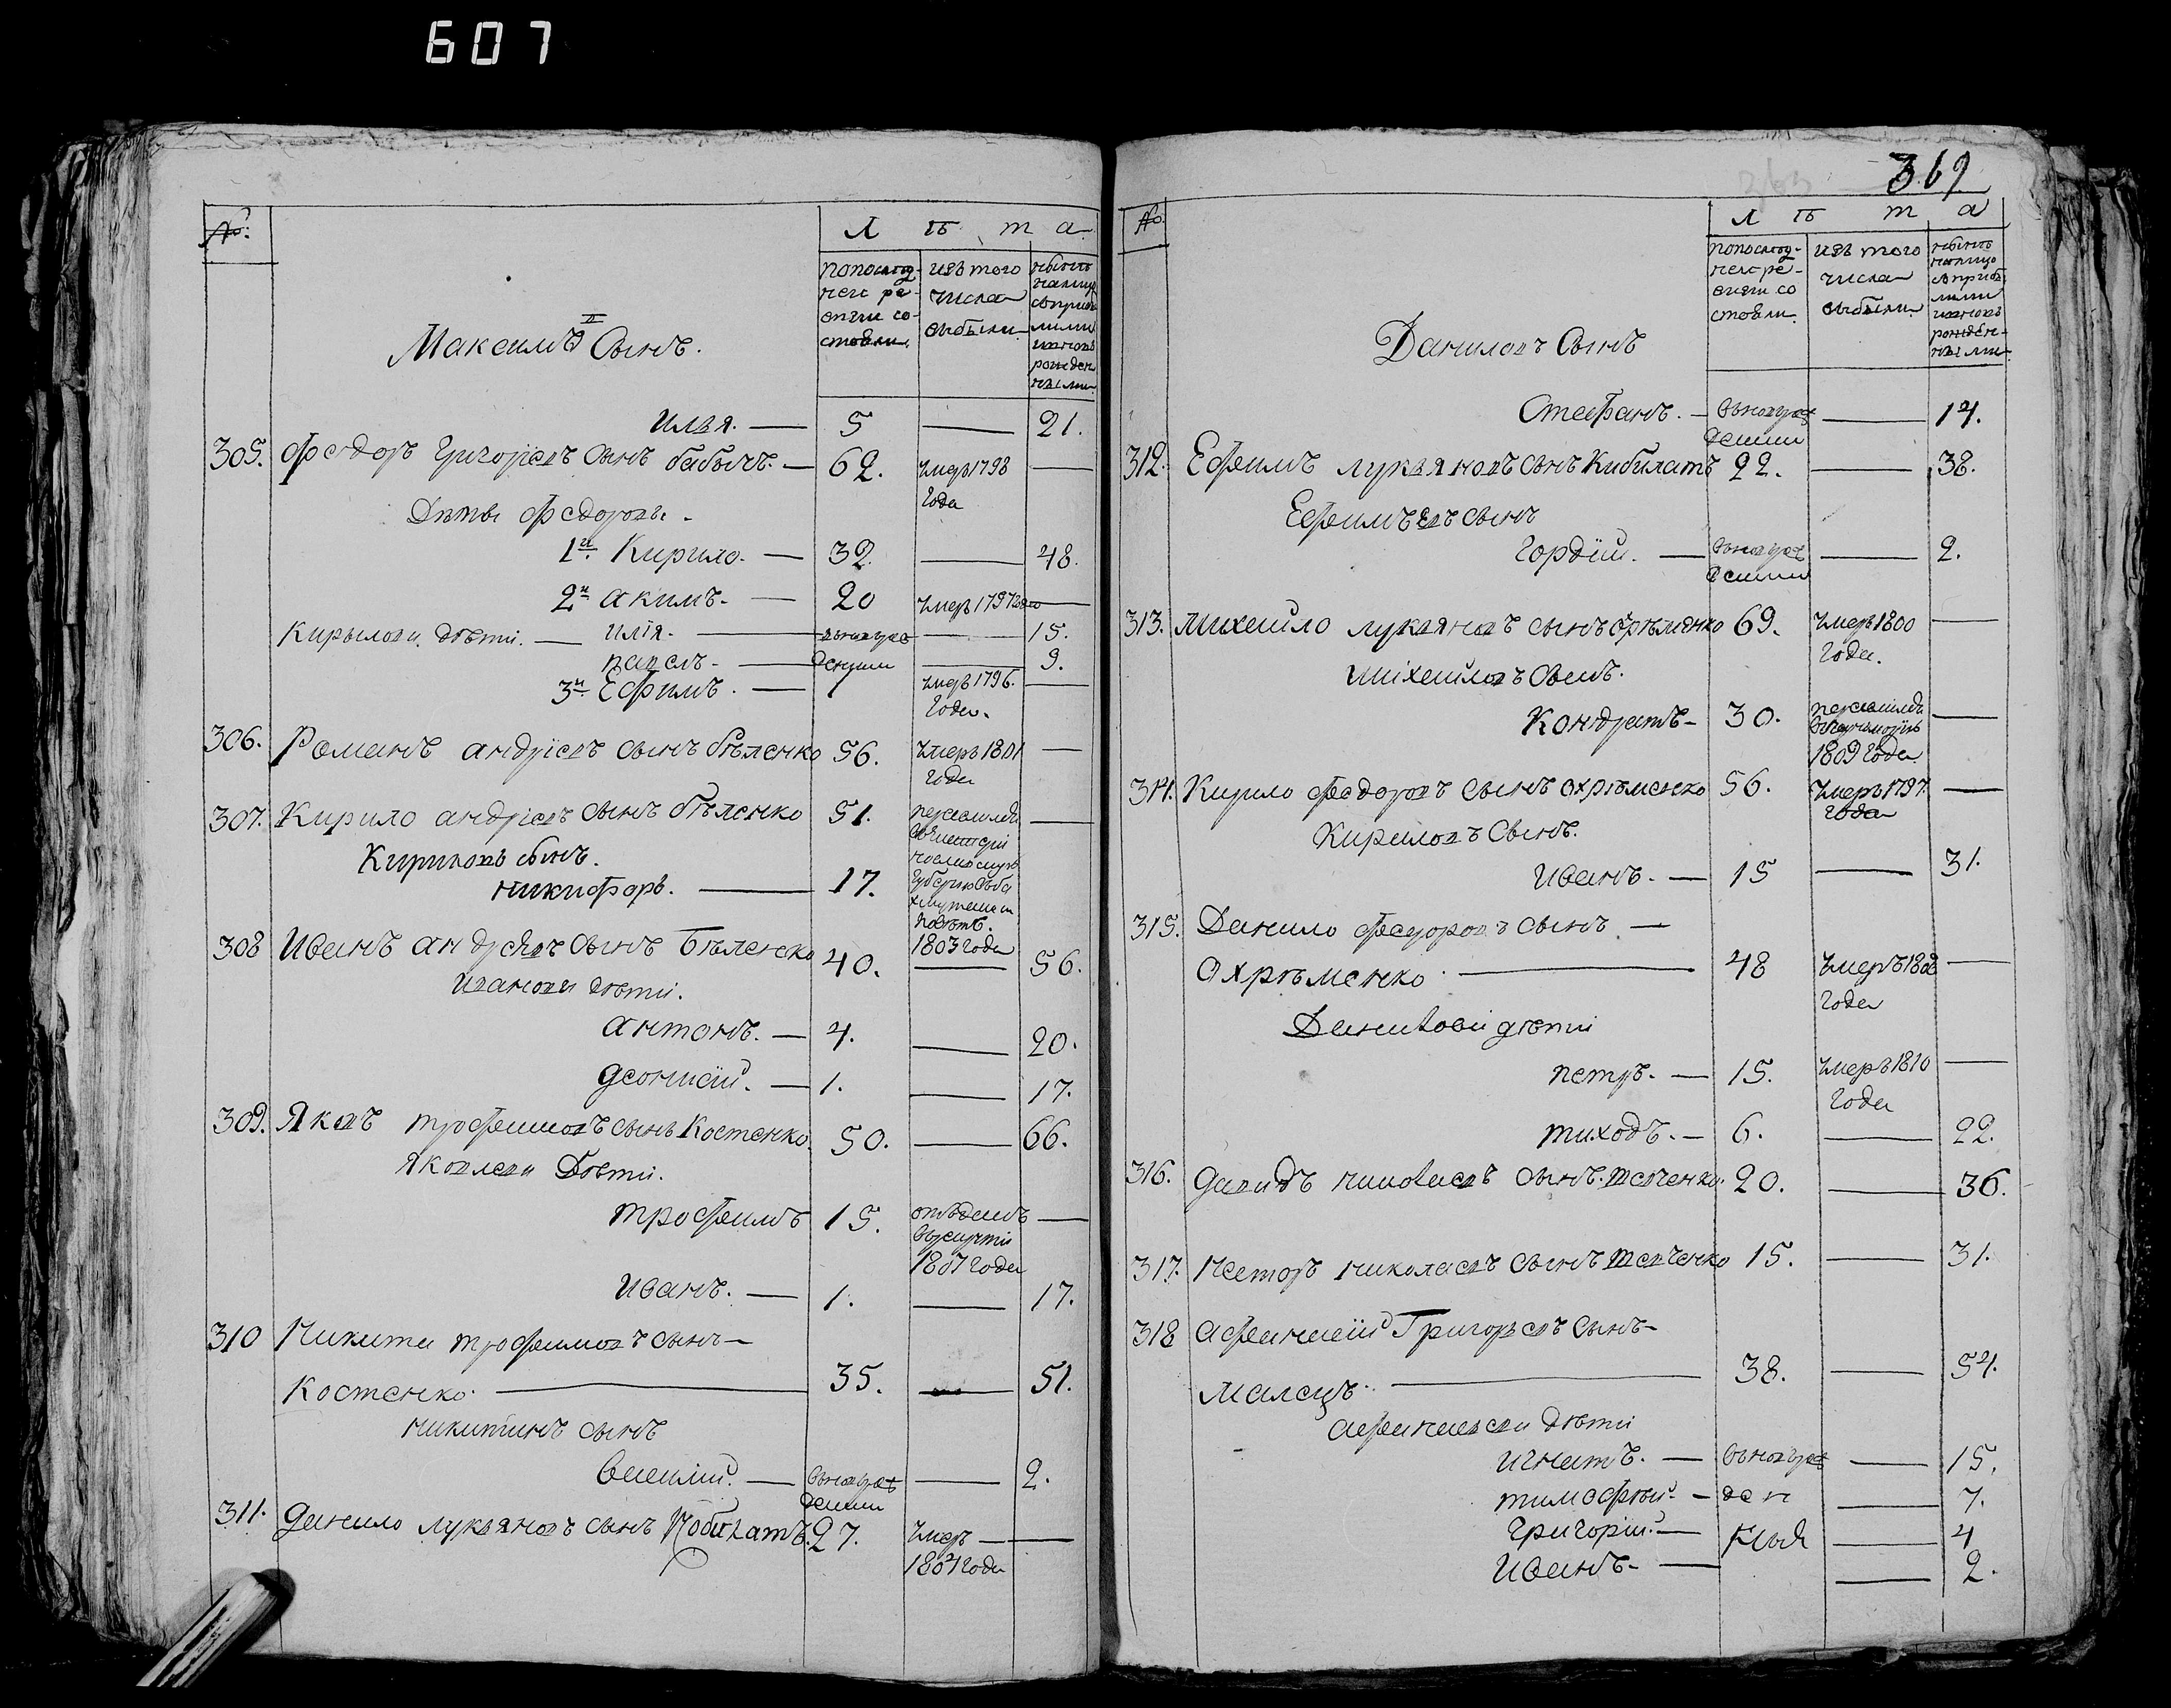 607
№:
Л ѣ т а
попослѣд-
ней ре-
визіи со-
стояли.
изъ того
числа
выбыли
нынѣ
налицо
съприбы
лыми
ивновь
рожден
ными
Максимовъ Сынъ.
Илья. — 5 — 21.
305. Федоръ Григорьевъ Сынъ бабычъ. — 62. умеръ 1798 —
Года
Дѣты федоровы.
1й Кирило. — 32. — 48.
2й акимъ. — 20 умеръ 1797 Года —
Кирылови дѣти. — илія. — вновьрож — 15.
павелъ. — денныи — 9.
3й Ефимъ. — 1 умеръ 1796. —
Года.
306. Романъ андріевъ сынъ бѣленко 56. умеръ 1801 —
Года
307. Кирило андріевъ Сынъ бѣленко 51.
—
Кириловъ сынъ.
никифоръ. — 17.
повѣтъ.
1803 Года
308 Иванъ андреевъ Сынъ Бѣленко 40. — 56.
Иванови дѣти.
антонъ. — 4. — 20.
деонисій. — 1. — 17.
309. Яковъ трофимовъ сынъ Костенко. 50. — 66.
Яковлеви Дѣти.
трофимъ 15. отъданъ —
врекруты
1807 Года
Иванъ. — 1. — 17.
310 Никита трофимовъ сынъ —
Костенко. — 35. — 51.
никитинъ сынъ
василій. — вновьрож — 2.
денныи
311. Данило лукьяновъ сынъ Кобилатъ. 27. умеръ — —
1807 Года
369
№
Л ѣ т а
попослѣд-
ней ре-
визіи со
стояли.
изъ того
числа
выбыли
нынѣ
налицо
съприбы
лыми
ивновь
рожден-
ными
Даниловъ Сынъ
Стефанъ. — вновьрож — 14.
денныи
312. Ефимъ лукьяновъ сынъ Кибилатъ 22. — 38.
Ефимъевъ сынъ
гордій. — вновьрож — 2.
денныи
313. михайло лукьяновъ сынъ охрѣменко 69. умеръ 1800 —
Года.
михайловъ Сынъ.
Кондратъ — 30. —
1809 Года
314. Кирило федоровъ Сынъ охрѣменко 56. умеръ 1797. —
Года
Кириловъ Сынъ.
Иванъ. — 15 — 31.
315. Данило федоровъ сынъ —
Охрѣменко. — 48 умеръ 1808 —
Года
Данилови дѣти
петръ. — 15. умеръ 1810 —
Года
тиходъ. — 6. — 22.
316. Давидъ николаевъ Сынъ. тевченко. 20. — 36.
317. Несторъ николаевъ Сынъ тевченко 15. — 31.
318 афанасій Григорьевъ сынъ —
малецъ. — 38. — 54.
афанасьеви дѣти
игнатъ. — вновьрож — 15.
тимофѣй. — ден — 7.
григорій. — ныя — 4
Иванъ. — — 2.